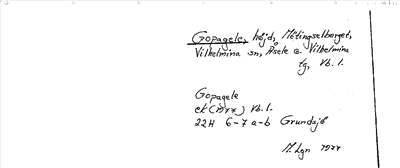 Gopagele, höjd, Mötingselberget,
Vilhelmina sn, Åsele o. Vilhelmina
tg, Vb. l.
Gopagele
ek (1977) Vb. l.
22H 6-7 a-b Grundsjö
M. Lgn 1977